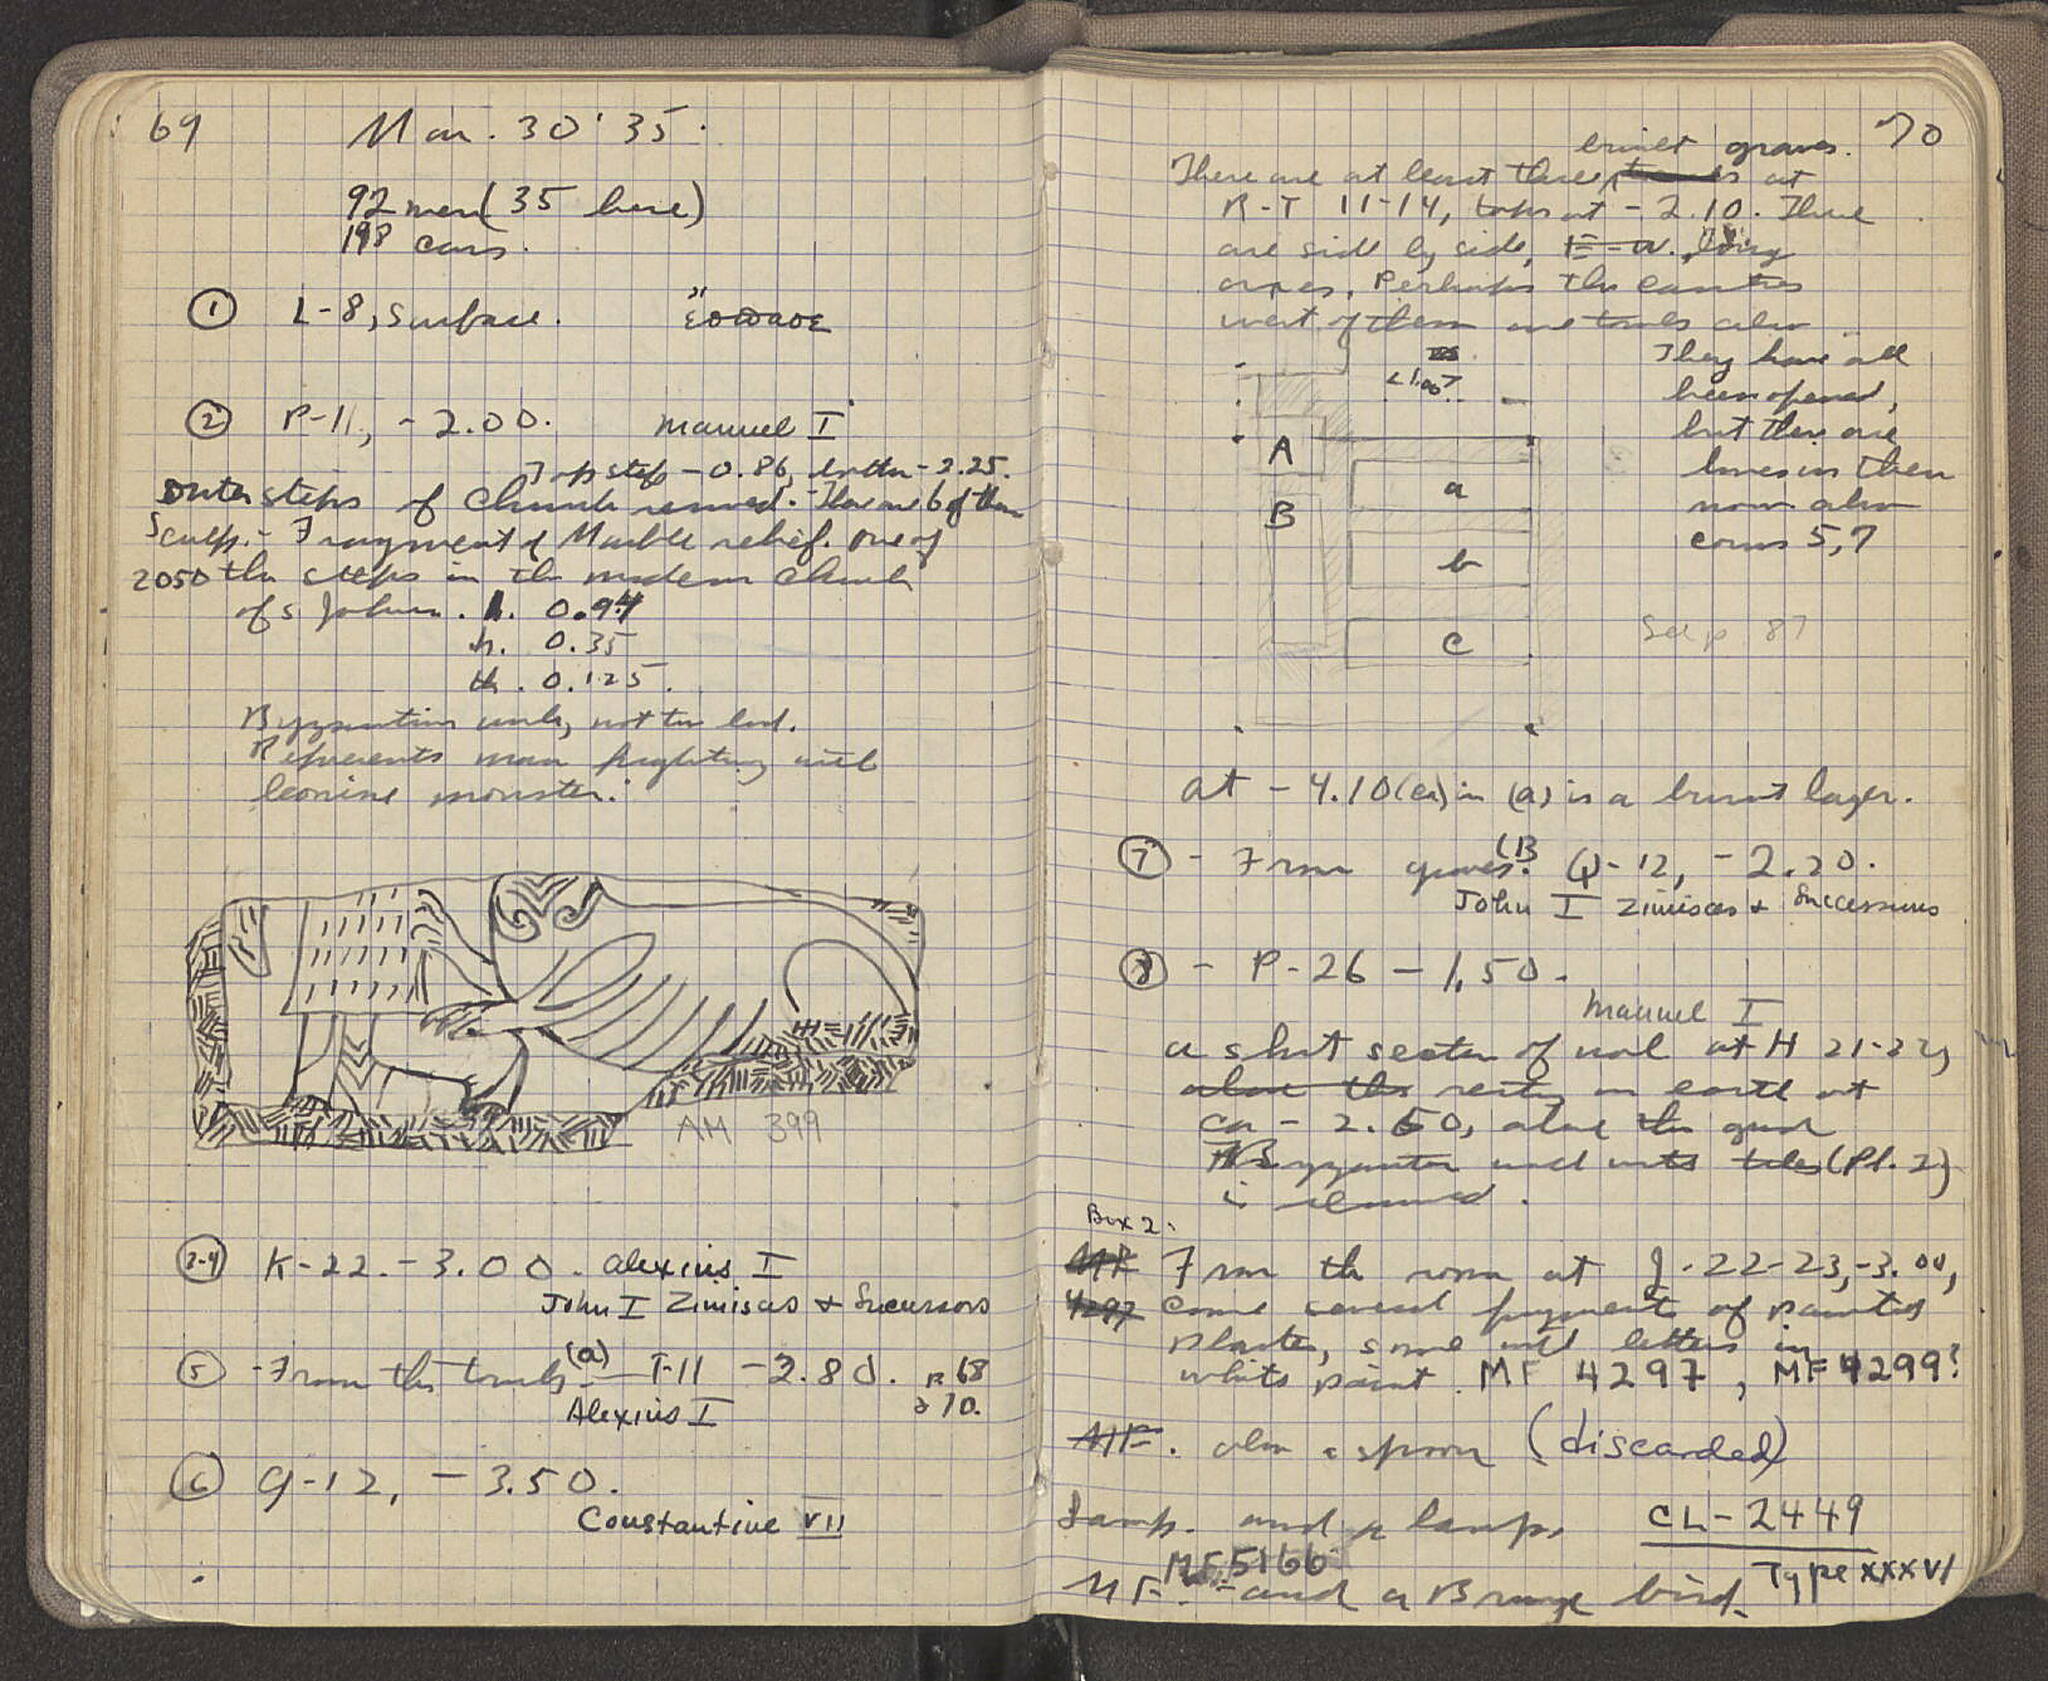 69
Mar. 30 '35.
92 men (35 here)
198 cars.
① L-8, surface.
② P-11, -2.00. Manuel I
Top step -0.86, bottom -2.25.
Outer steps of Church removed. There are 6 of them
Sculp. - Fragment of Marble relief. One of
2050 the steps in the modern church
of S. John. l. 0.94
h. 0.35
th. 0.125.
Byzantine work, not too bad.
Represents man fighting with
leonine monster.
AM 399
3-4 K-22. -3.00. Alexius I
John I Zimisces + Successors
⑤ - From the tombs (a) - T-11 -2.80. p. 68
& 70.
Alexius I
⑥ G-12, -3.50.
Constantine VII
70
built graves.
There are at least three at
R-T 11-14, tops at -2.10. These
are side by side, E-W. long
ones, Perhaps the
west of them are tombs also
They have all
been opened,
but there are
bones in them
now also
coins 5, 7
A
B
a
b
c
See p. 87
at -4.10 (ca) in (a) is a burnt layer.
⑦ - From graves. (B Q-12, -2.20.
John I Zimisces + Successors
⑧ - P-26 -1.50.
Manuel I
a short section of wall at H 21-22,
resting on earth at
ca -2.60, above the good
Byzantine wall with tiles (Pl. 2)
is removed.
Box 2:
MF From the room at J-22-23, -3.00,
4297 come several fragments of painted
plaster, some with letters in
white paint. MF 4297, MF 4299?
MF. also a spoon (discarded)
Lamp. and a lamp, CL-2449
Type XXXVI
MF 5166
MF. - and a Bronze bird.